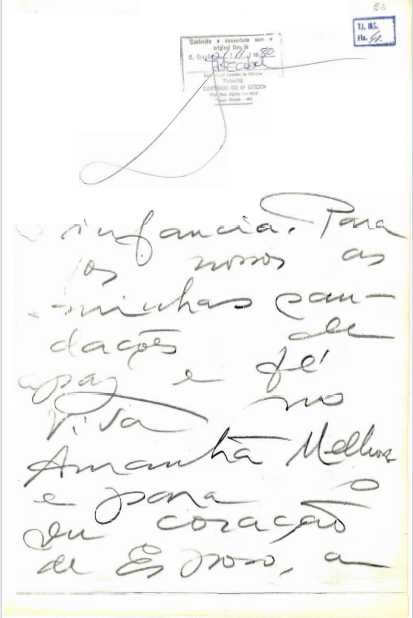 84
TJ. MS.
Fls. 41.
Confere e concorda com o
original Dou fé
infancia. Para
os nossos as
minhas sau-
dações de
paz e fé
Vida no
Amanhã Melhor
e para o
seu coração
de Esposo, a